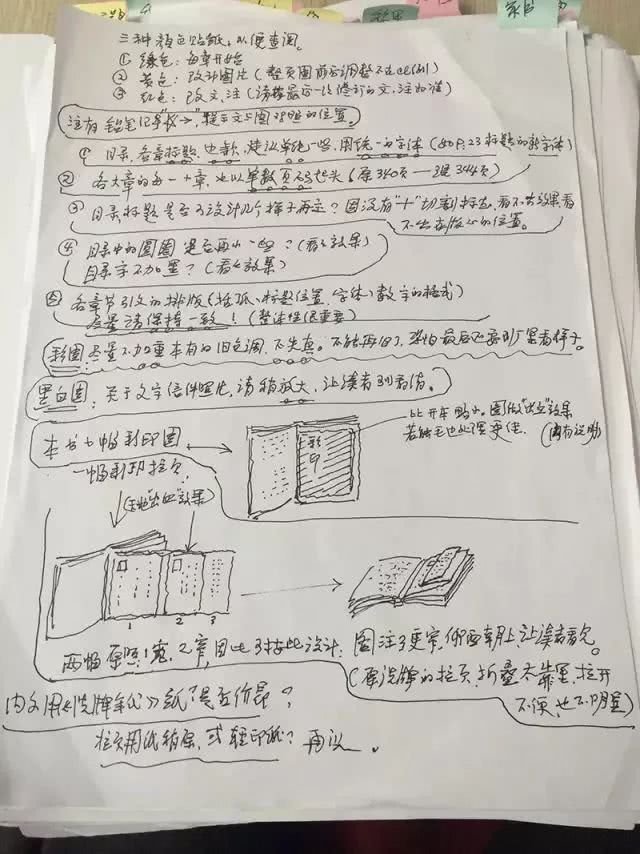 三种颜色贴纸,以便查阅。
① 绿色:每章开始
② 黄色:改动图片(整页图前后调整不在此例)
③ 红色:改文、注(请按最后一次修订的文、注为准)
注有铅笔记号"→"提示文与图说明的位置。
① 目录、各章标题、也款,建议单纯一些,用统一的字体(如P.23标题的数字体)
② 各大章的每一个章,也以单数页码起头(原340页——退344页)
③ 目录标题是否可设计几个样子再定?因没有"十"切割标志,看不出效果看
不出在版心的位置。
④ 目录中的圆圈是否再小一些?(看看效果)
目录字不加黑?(看看效果)
⑤ 各章节引文的排版(括弧、标题位置、字体)数字的格式)
尽量请保持一致!(整体性很重要)
彩图:尽量不加重本有的旧色调,不失真。不能再旧了,
黑白图:关于文字信件照片,请稍放大,让读者别看偏。
本书七幅彩印图
一幅彩印拉页
彩印
比开本略小。图做"出血"效果
若能毛边处理更佳。(图有说明)
"出血"效果
1 2 3
两幅原照1宽,2窄,因此3按此设计:图注3更窄,仰面朝上让读者看见。
(原洗牌的拉页,折叠太靠里,拉开
不便,也不明显)
内文用《洗牌年代》纸?是否价昂?
拉页用纸稍厚,或轻印纸?再议。